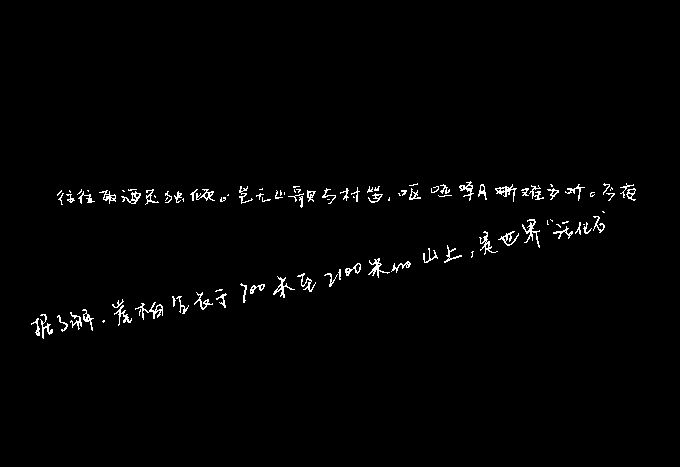 往往取酒还独倾。岂无山歌与村笛,呕哑嘲哳难为听。今夜
据了解,崖柏生长于700米至2100米的山上,是世界“活化石